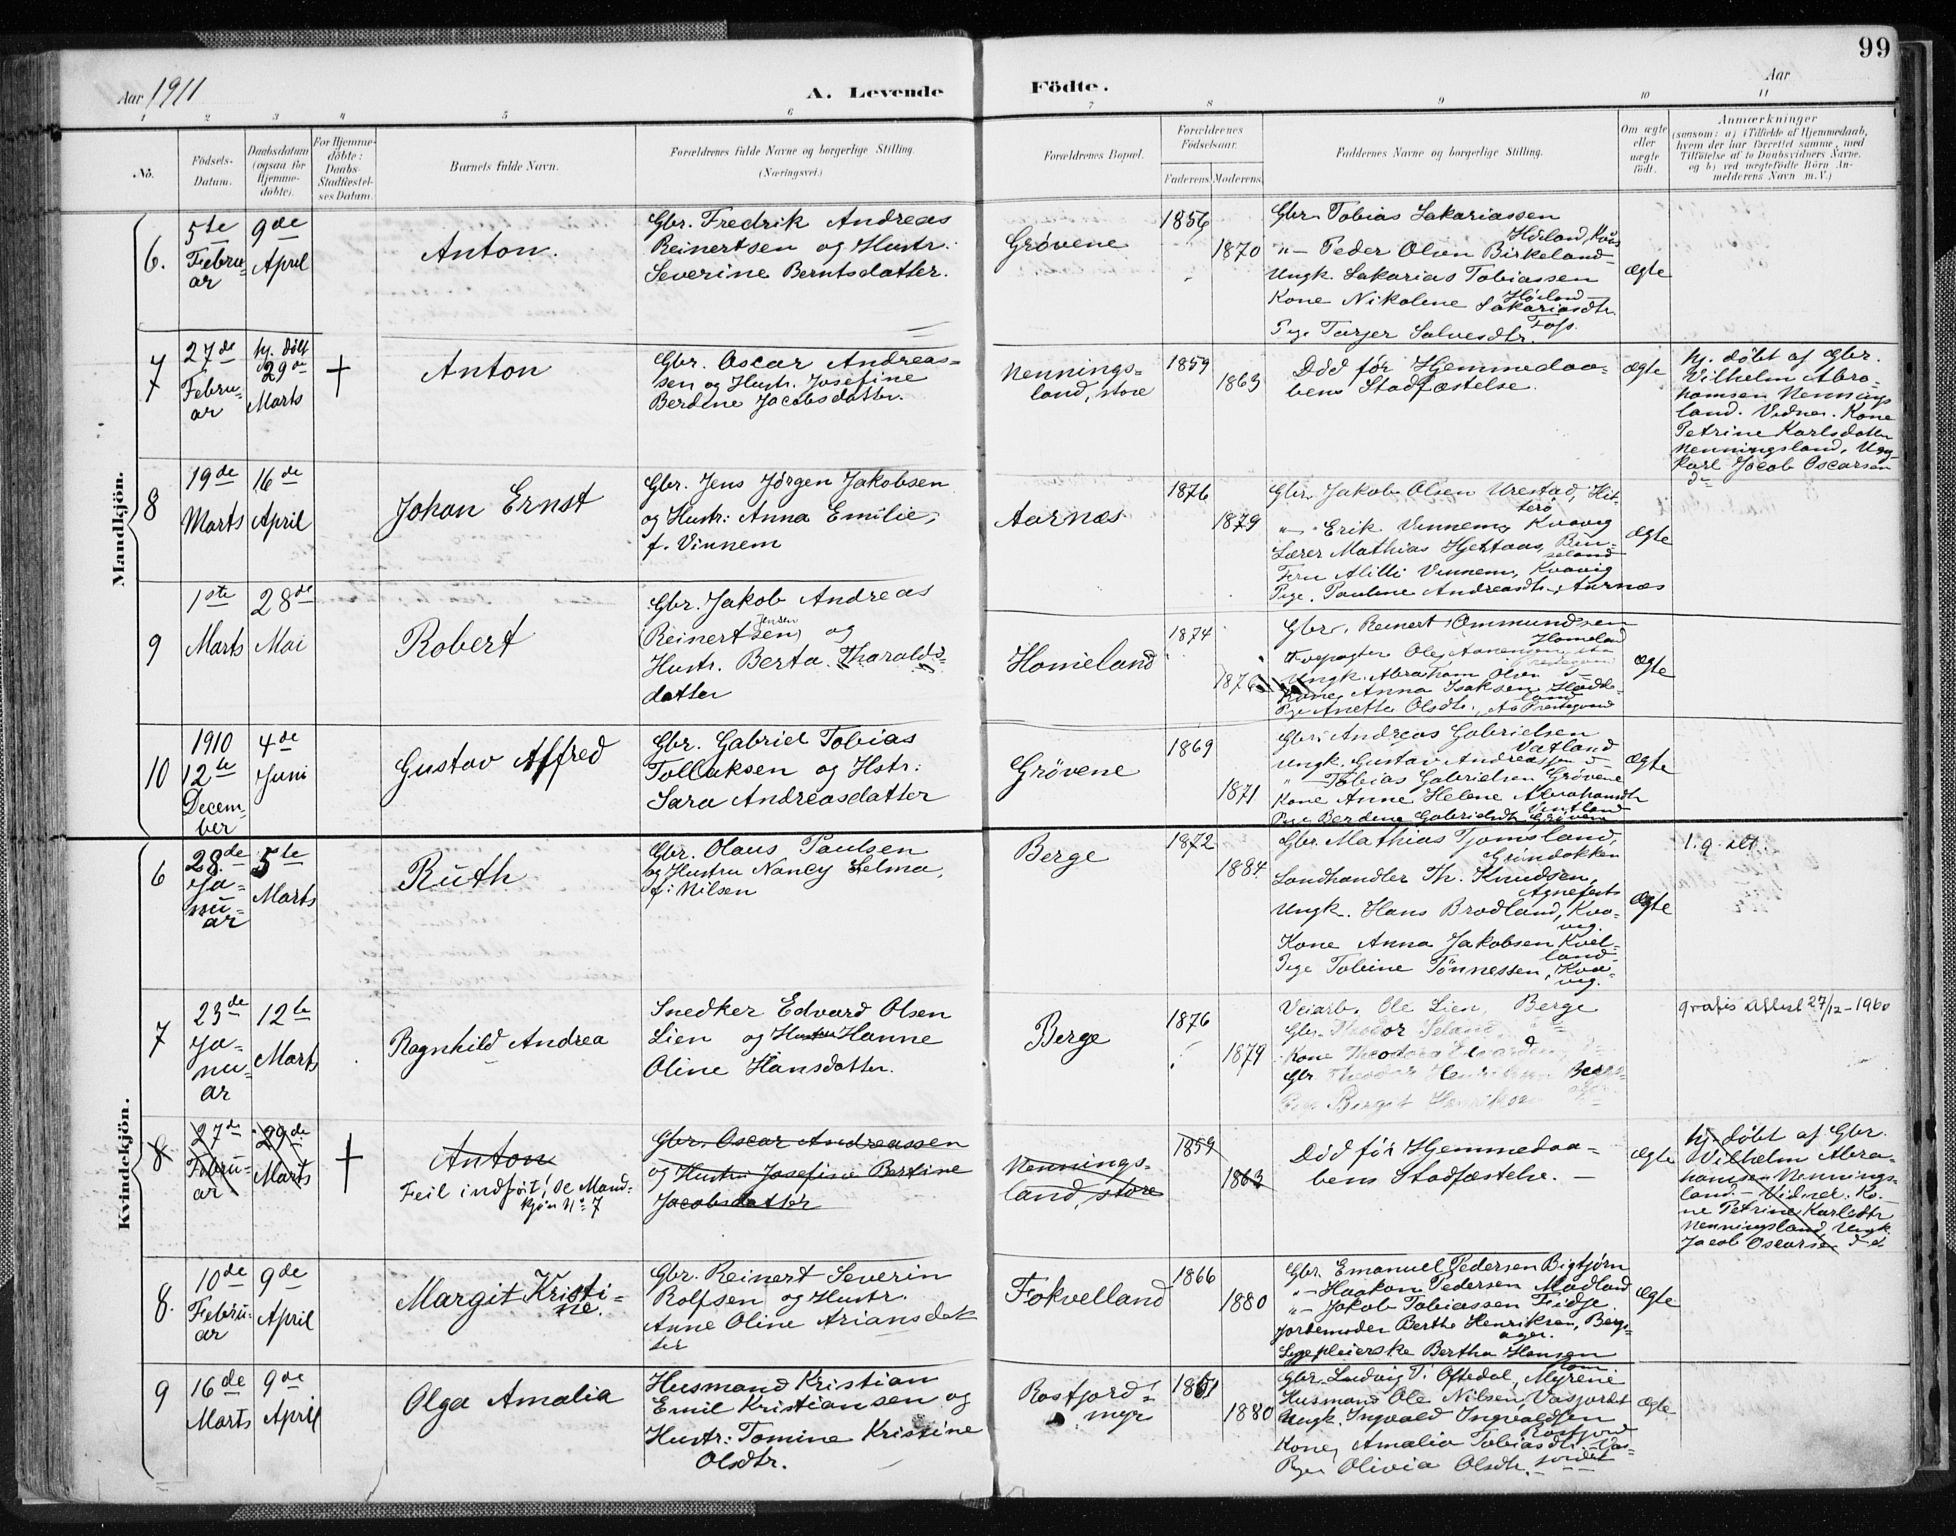 99
Aar 1911
A. Levende Födte.
Aar
1 2 3 4 5 6 7 8 9 10 11
No.
Födsels-Datum.
Daabsdatum (ogsaa for Hjemmedöbte).
For Hjemmedöbte: Daabs-Stadfæstelses Datum.
Barnets fulde Navn.
Forældrenes fulde Navne og borgerlige Stilling. (Næringsvei.)
Forældrenes Bopæl.
Forældrenes Födselsaar.
Faderens. Moderens.
Faddernes Navne og borgerlige Stilling.
Om ægte eller uægte födt.
Anmærkninger
(saasom: a) i Tilfælde af Hjemmedaab, hvem der har forrettet samme, med Tilföielse af to Daabsvidners Navne, og b) ved uægtefödte Börn Anmelderens Navn m. V.)
Mandkjön.
6.
5te Februar
9de April
Anton.
Gbr. Fredrik Andreas
Reinertsen og Hustr.
Severine Berntsdatter.
Grövene
1856
1870
Gbr. Tobias Sakariassen
Höiland, Kvås
"– Peder Olsen Birkeland
Ungk. Sakarias Tobiassen
Höiland
Kone Nikolene Sakariasdtr.
Foss.
Pige Tarjer Salvesdtr.
ægte
7
27de Februar
hj. døbt 29de Marts
†
Anton
Gbr. Oscar Andreas-
sen og Hustr. Josefine
Berdine Jacobsdatter.
Nennings-
land, store
1859
1863
Död før Hjemmedaa-
bens Stadfæstelse.
ægte
hj. döbt af Gbr.
Vilhelm Abra-
hamsen Nennings
land. Vidner. Kone
Petrine Karlsdatter
Nenningsland, Ung-
karl Jacob Oscarsen
d–
8
19de Marts
16de April
Johan Ernst
Gbr. Jens Jörgen Jakobsen
og Hustr: Anna Emilie,
f. Vinnem
Aarnæs
1876
1879
Gbr. Jakob Olsen Urestad, Hit-
terö
"– Erik Vinnem, Kvavig
Lærer Mathias Hjertaas,
Fru Alilli Vinnem, Kvavig
Pige. Pauline Andreasdtr., Aarnæs
ægte
9
1ste Marts
28de Mai
Robert
Gbr. Jakob Andreas
Jensen
(Reinertsen) og
Hustr. Berta Tharalds-
datter
Homeland
1874
1876
Gbr. Reinert Ommundsen
Homeland
Ungk. Abraham Olsen d–
Kone Anna Isaksen
Pige Anette Olsdtr., Aa Prestegaard
ægte
10
1910 12te December
4de Juni
Gustav Alfred
Gbr. Gabriel Tobias
Tollaksen og Hstr:
Sara Andreasdatter
Grövene
1869
1871
Gbr. Andreas Gabrielsen
Vatland
Ungk. Gustav Andreassen d–
"– Tobias Gabrielsen Grövene
Kone Anne Helene Abrahamdtr
Vintland
Pige Berdine Gabrielsdtr. Grövene
ægte
Kvindekjön.
6
28de Januar
5te Marts
Ruth
Gbr. Olaus Paulsen
og Hustru Nancy Selma,
f: Nilsen
Berge
1872
1884
Gbr. Mathias Tjomsland,
Gröndokken
Landhandler Th. Knudsen,
Agnefest
Ungk. Hans Brodland, Kva-
vig.
Kone Anna Jakobsen Kvel-
land
Pige Tobine Tönnessen, Kva-
vig.
ægte
7
23de Januar
12te Marts
Ragnhild Andrea
Snedker Edvard Olsen
Lien og Hustru Hanne
Oline Hansdatter.
Berge
1876
1879
Veiarb. Ole Lien, Berge
Gbr. Theodor Seland
Kone Theodora Edvardsen
Gbr. Theodor Henriksen Berg-
Pige Bergit Henriksen
gratis attest 27/12–1960
8
27de Februar
29de Marts
†
Anton
Feil indfört! Se Mand-
kjön No 7
Gbr. Oscar Andreassen
og Hustru Josefine Bertine
Jacobsdatter
Nennings-
land, store
1859
1863
Död før Hjemmedaa-
bens Stadfæstelse. –
ægte
hj. döbt af Gbr.
Vilhelm Abra-
hamsen Nennings-
land. – Vidner. Ko-
ne Petrine Karlsdtr
Nenningsland Ungk.
Jacob Oscarsen d–
8.
10de Februar
9de April
Margit Kristi-
ne.
Gbr. Reinert Severin
Rolfsen og Hustr.
Anne Oline Ariansdat
ter
Fokvelland
1866
1880
Gbr. Emanuel Pedersen Bigtjörn
"– Haakon Pedersen Mødland
"– Jakob Tobiassen Fidje.
Jordemoder Berthe Henriksen, Bergs-
ager.
Sygepleierske Bertha Hansen
ægte
9
16de Marts
9de April
Olga Amalia
Husmand Kristian
Emil Kristiansen og
Hustr: Tomine Kristine
Olsdtr.
Rosfjord-
myr
1880
Gbr. Ludvig T. Oftedal, Myrene
Husmand Ole Nilsen, Vasjordet
Ungk. Ingvald Ingvaldsen
Rosfjord
Kone, Amalia Tobiasdtr. Vas-
jordet
Pige Olivia Olsdtr.
ægte